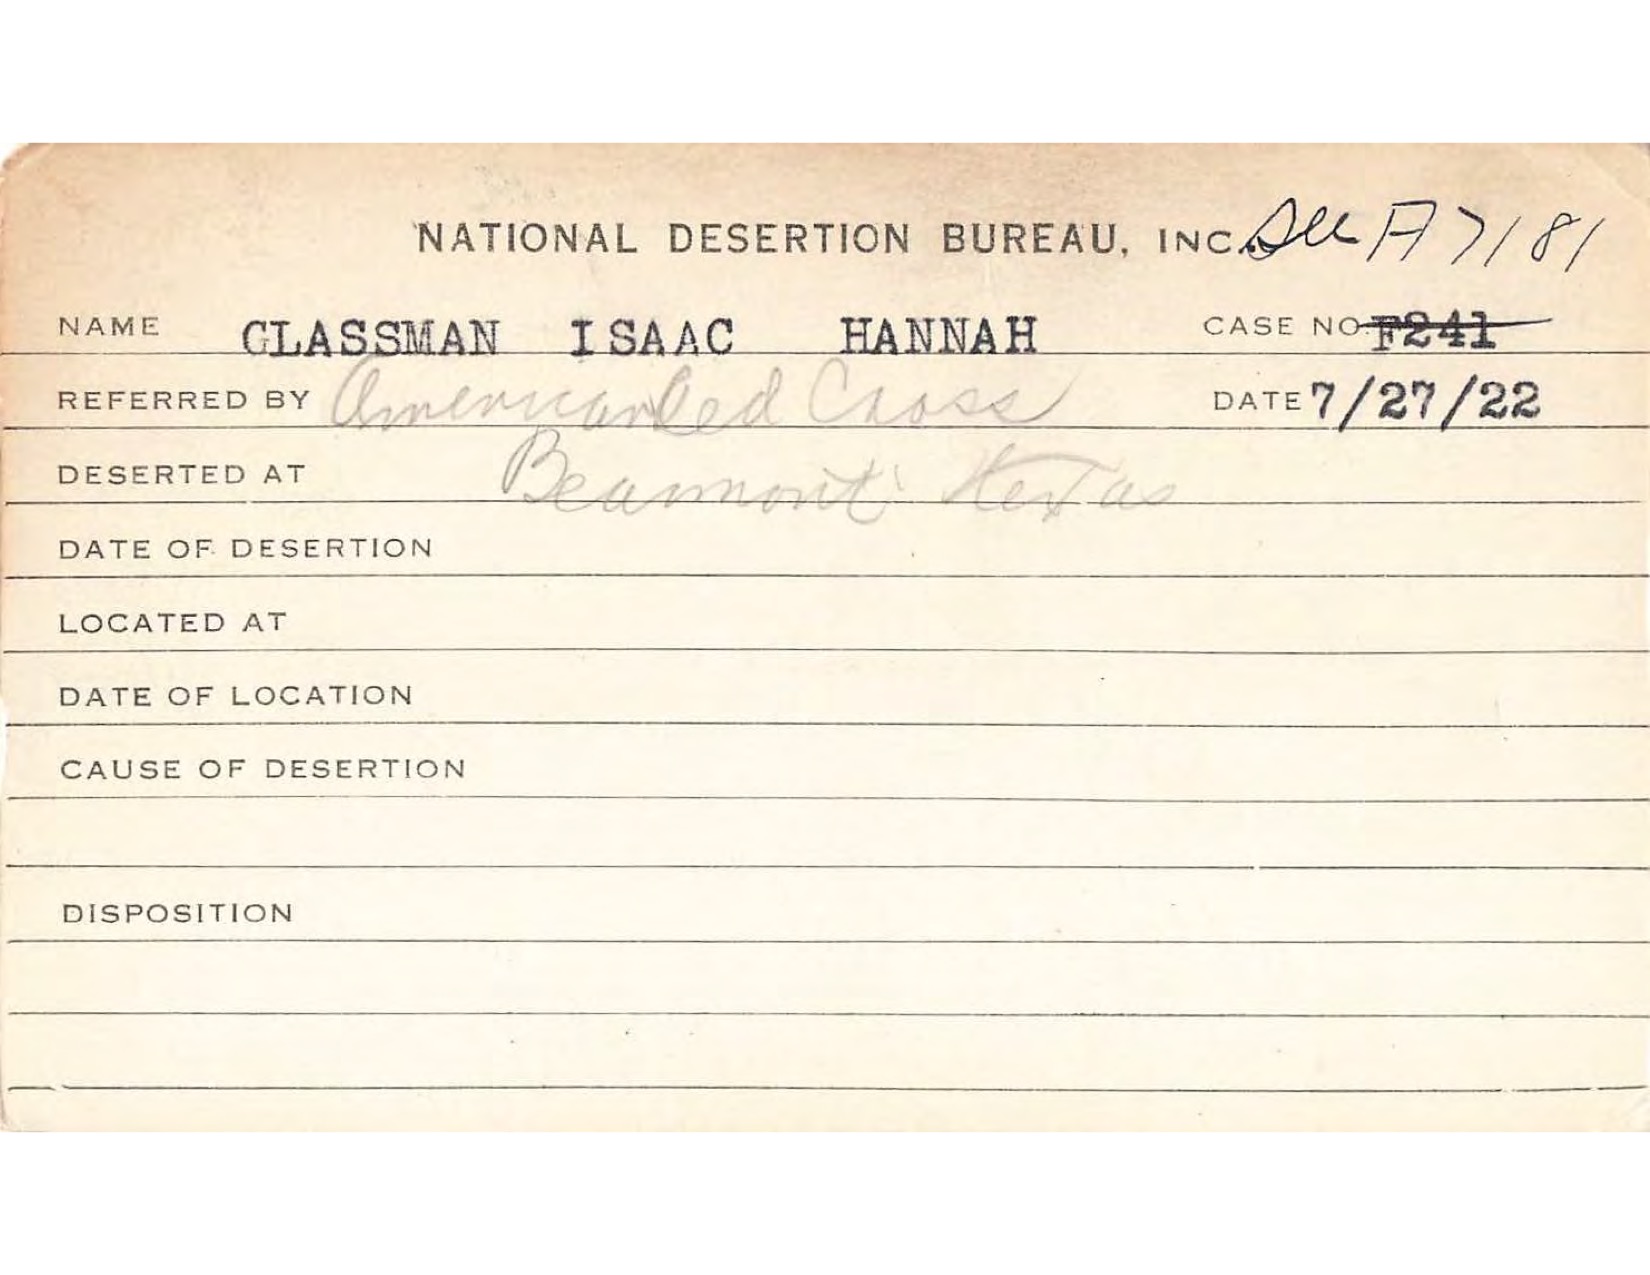 NATIONAL DESERTION BUREAU, INC. See A7181
NAME GLASSMAN ISAAC HANNAH CASE NO. F241
REFERRED BY American Red Cross DATE 7/27/22
DESERTED AT Beaumont Texas
DATE OF DESERTION
LOCATED AT
DATE OF LOCATION
CAUSE OF DESERTION
DISPOSITION